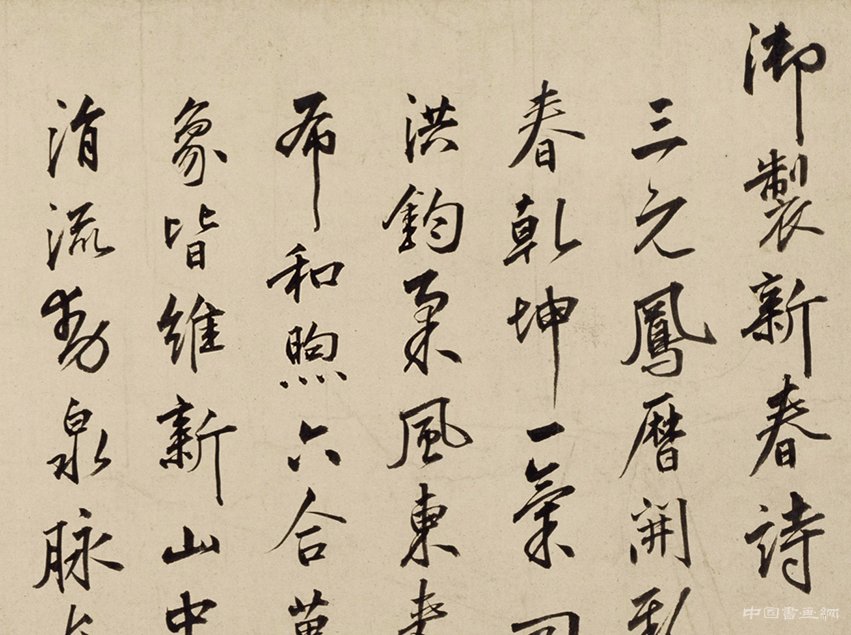 御製新春詩
三元鳳曆開
春乾坤一氣
洪鈞柔風東
布和煦六合萬
象皆維新山中
涓流動泉脉
中国書画網